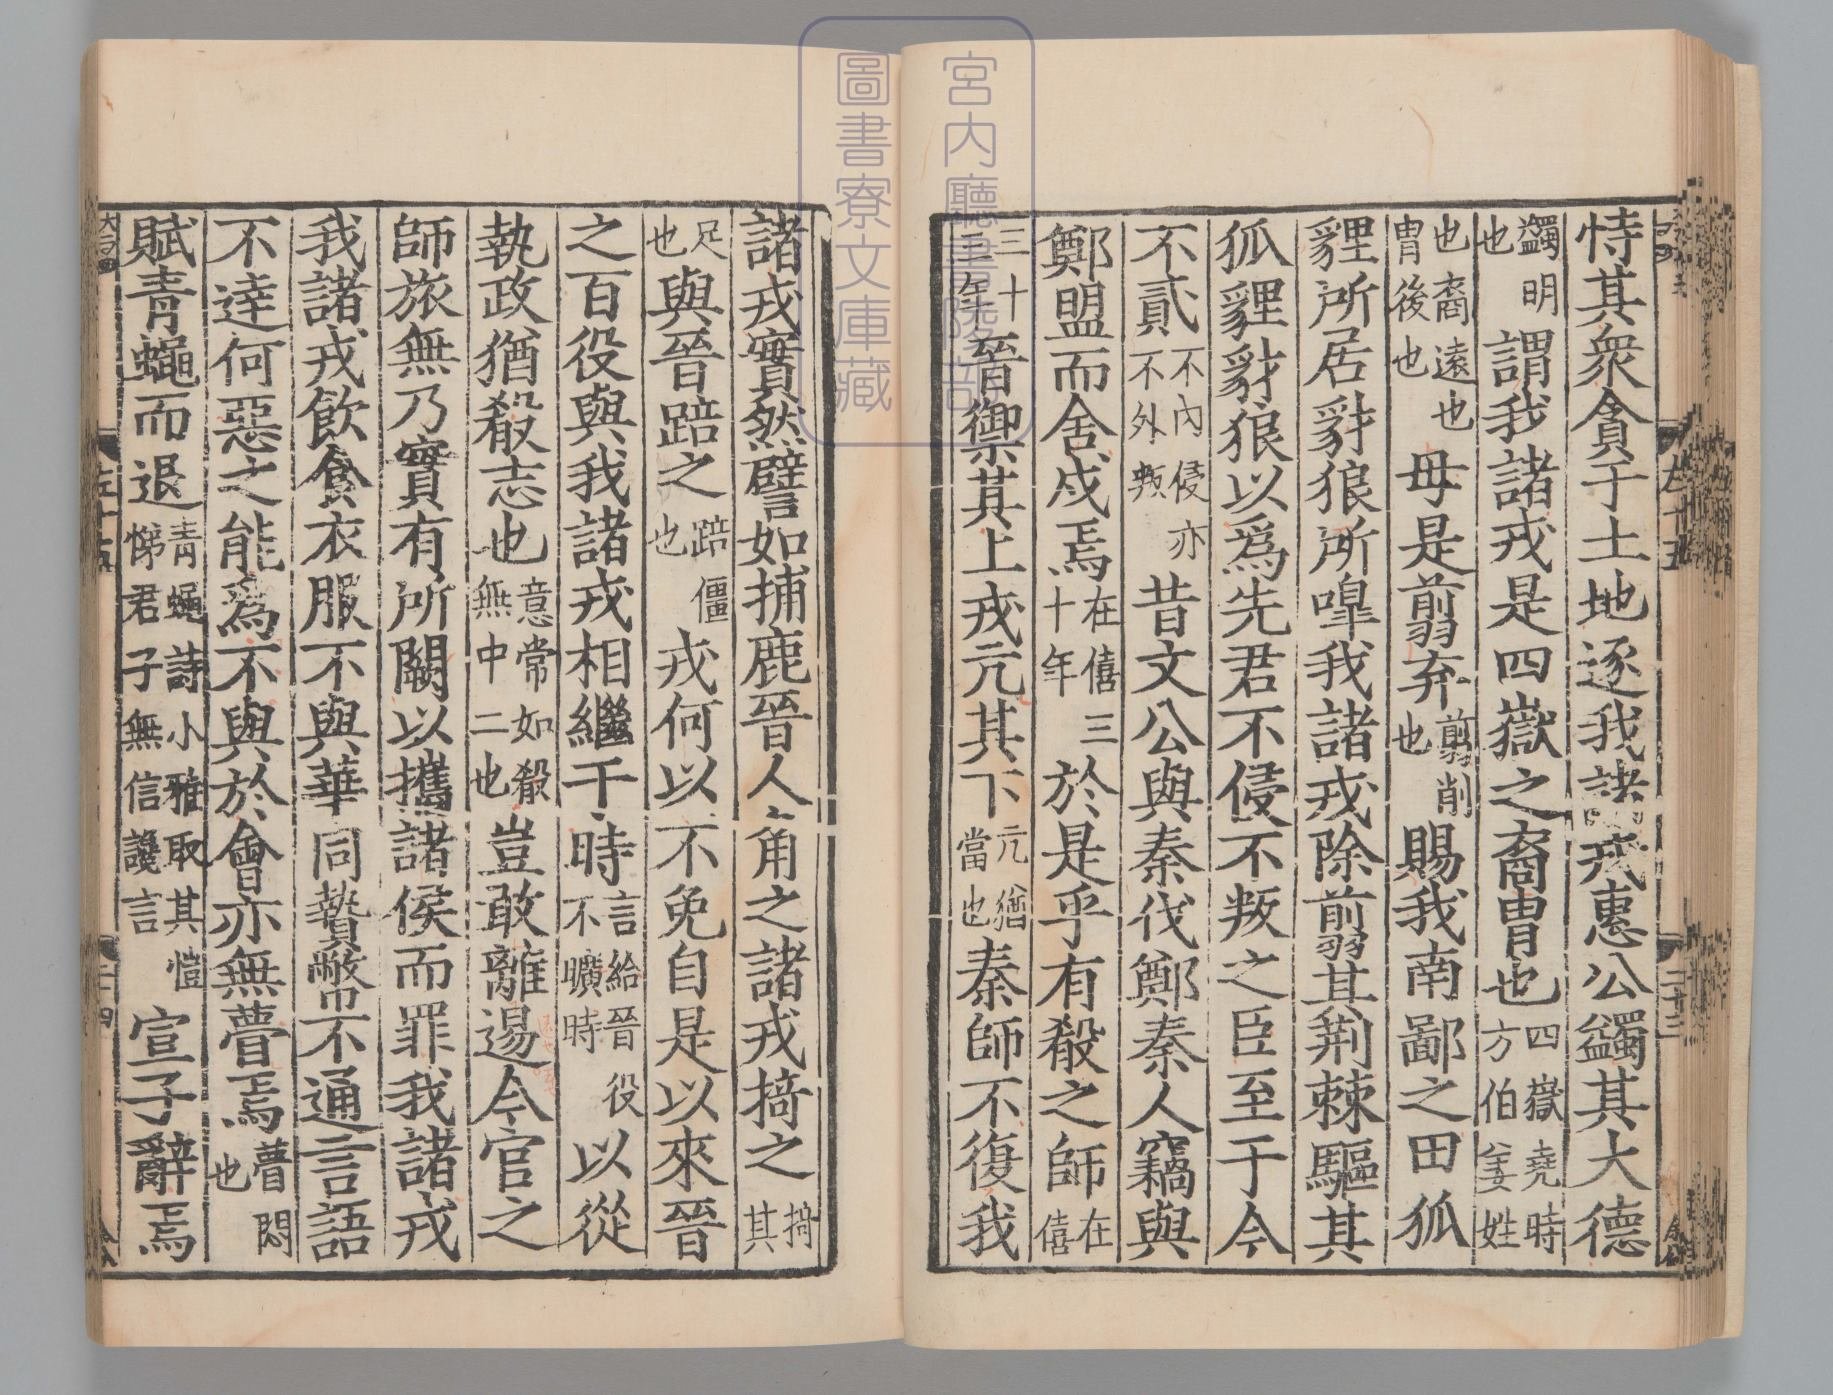 恃其衆貪于土地逐我諸戎惠公蠲其大德
蠲明也謂我諸戎是四嶽之裔胄也四嶽堯時方伯姜姓
也裔遠也胄後也毋是翦弃翦削也賜我南鄙之田狐
貍所居豺狼所嘷我諸戎除翦其荆棘驅其
狐貍豺狼以爲先君不侵不叛之臣至于今
不貳不內侵亦不外叛昔文公與秦伐鄭秦人竊與
鄭盟而舍戍焉在僖三十年於是乎有殽之師在僖
三十三年晉禦其上戎亢其下亢猶當也秦師不復我
諸戎實然譬如捕鹿晉人角之諸戎掎之掎其
足也與晉踣之踣僵也戎何以不免自是以來晉
之百役與我諸戎相繼于時言給晉役不曠時以從
執政猶殽志也意常如殽無中二也豈敢離逷今官之
師旅無乃實有所闕以攜諸侯而罪我諸戎
我諸戎飲食衣服不與華同贄幣不通言語
不達何惡之能爲不與於會亦無瞢焉瞢悶也
賦青蠅而退青蠅詩小雅取其愷悌君子無信讒言宣子辭焉
宮内廳書陵部
圖書寮文庫藏